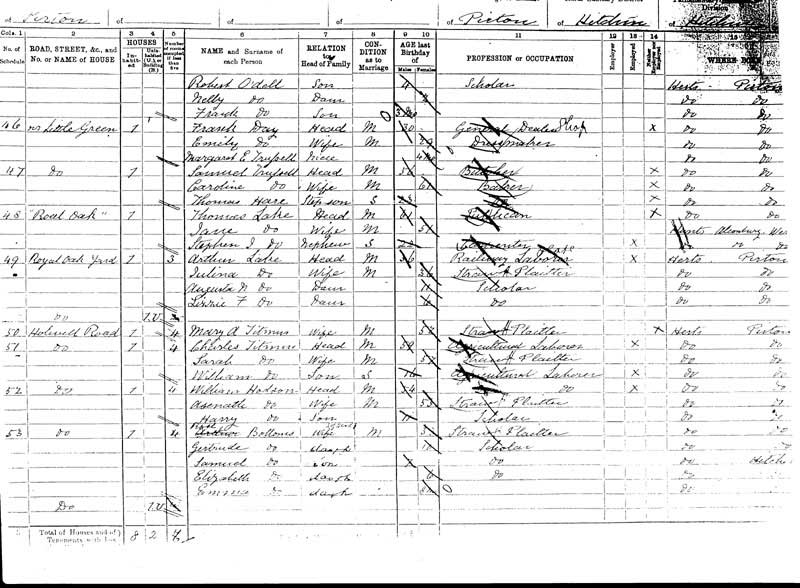 of Pirton of of of Pirton of Hitchin of Hitchin
Division
Cols. 1 2 3 4 5 6 7 8 9 10 11 12 13 14 15
HOUSES
No. of Schedule ROAD, STREET, &c., and No. or NAME of HOUSE Inhabited Uninhabited (U.) or Building (B.) Number of rooms occupied if less than five NAME and Surname of each Person RELATION to Head of Family CONDITION as to Marriage AGE last Birthday of Males Females PROFESSION or OCCUPATION Employer Employed Neither Employer nor Employed WHERE BORN
Robert Odall Son 4 Scholar Herts Pirton
Nelly Do Daur 2 Do Do
Frank Do Son Do Do
46 nr Little Green 1 Frank Day Head M 30 General Dealer Shop x Do Do
Emily Do Wife M 29 Dressmaker Do Do
Margaret E Trussell Niece Do Do
47 Do 1 Samuel Trussell Head M 56 Butcher x Do Do
Caroline Do Wife M 61 Baker x Do Do
Thomas Hare Stepson S x Do Do
48 "Royal Oak" 1 Thomas Lake Head M 61 Publican x Do Do
Jane Do Wife M 51
Stephen J. Do Nephew S 22 Carpenter x
49 Royal Oak Yard 1 3 Arthur Lake Head M 36 Railway Laborer x Herts Pirton
Julina Do Wife M 36 Straw Plaitter Do Do
Augusta N Do Daur 11 Scholar Do Do
Lizzie F Do Daur 4 Do Do Do
Do 1.U
50 Holwell Road 1 4 Mary A Titmus Wife M 52 Straw Plaitter x Herts Pirton
51 Do 1 4 Charles Titmus Head M 59 Agricultural Laborer x Do Do
Sarah Do Wife M 57 Straw Plaitter Do Do
William Do Son S 16 Agricultural Laborer x Do Do
52 Do 1 4 William Hodson Head M 54 Do Do x Do Do
Asenath Do Wife M 53 Straw Plaitter Do Do
Harry Do Son 11 Scholar Do
53 Do 1 4 Bottoms Wife M Straw Plaitter Do Do
Gertrude Do daugh 11 Scholar Do Do
Samuel Do son Do Do Hitchin
Elizabeth Do daugh 6 Do Do
Emma Do daugh Do
Do 1.U
5 Total of Houses and of Tenements with less 8 2 7